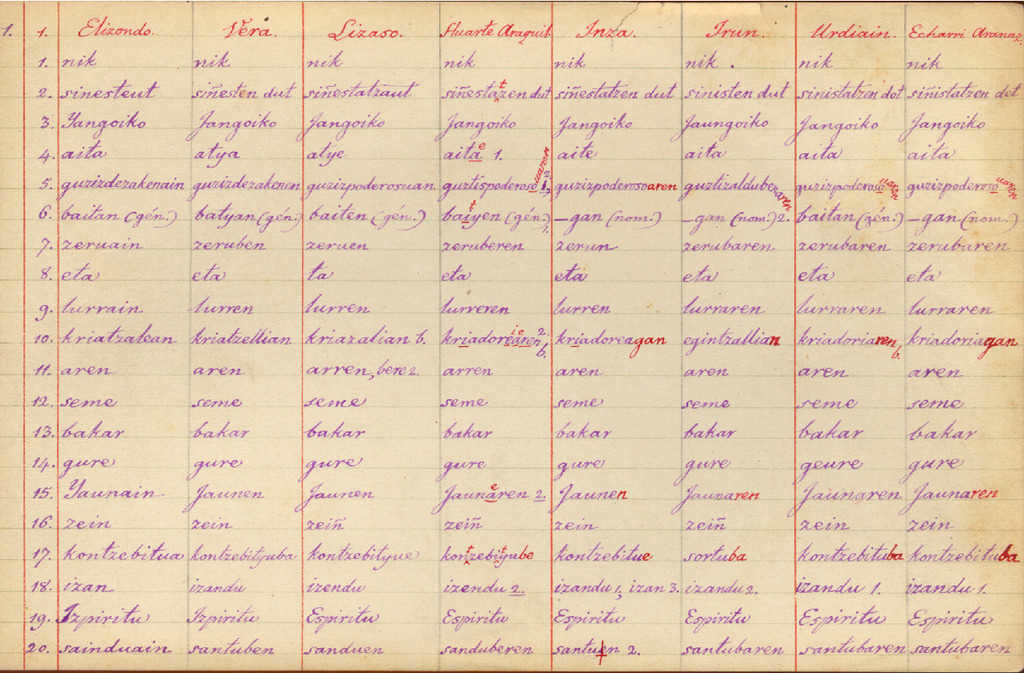 1. 1. Elizondo. Vera. Lizaso. Huarte Araquil. Inza. Irun. Urdiain. Echarri Aranaz.
1. nik nik nik nik nik nik . nik nik
2. sinesteut siñesten dut siñestatzaut siñestatzen dut siñestatzen dut sinisten dut sinistatzen dot siñistatzen det
3. Yangoiko Jangoiko Jangoiko Jangoiko Jangoiko Jaungoiko Jangoiko Jangoiko
4. aita atya atye aitae 1. aite aita aita aita
5. guzizdezakenain guzizdezakenen guzizpoderosuan guztispoderoso guzizpoderosoaren guztizaldubenaren guzizpoderosouaren guzizpoderosouaren
6. baitan (gén.) batyan (gén.) baiten (gén.) baityen (gén.) 1. -gan (nom.) -gan (nom.) 2. baitan (gén.) -gan (nom.)
7. zeruain zeruben zeruen zeruberen zerun zerubaren zerubaren zerubaren
8. eta eta ta eta eta eta eta eta
9. lurrain lurren lurren lurreren lurren lurraren lurraren lurraren
10. kriatzalean kriatzellian kriazalian b. kriadorearen ie 2. b. kriadoreagan egintzallian kriadoriaren b. kriadoriagan
11. aren aren arren, bere 2. arren aren aren aren aren
12. seme seme seme seme seme seme seme seme
13. bakar bakar bakar bakar bakar bakar bakar bakar
14. gure gure gure gure gure gure geure gure
15. Yaunain Jaunen Jaunen Jaunaren e 2. Jaunen Jaunaren Jaunaren Jaunaren
16. zein zein zeiñ zeiñ zein zeiñ zein zein
17. kontzebitua kontzebityuba kontzebityue kontzebityube kontzebitue sortuba kontzebituba kontzebituba
18. izan izandu izendu izendu 2. izandu 1, izan 3. izandu 2. izandu 1. izandu 1.
19. Izpiritu Izpiritu Espiritu Espiritu Espiritu Espiritu Espiritu Espiritu
20. sainduain santuben sanduen sanduberen santuen 2. santubaren santubaren santubaren